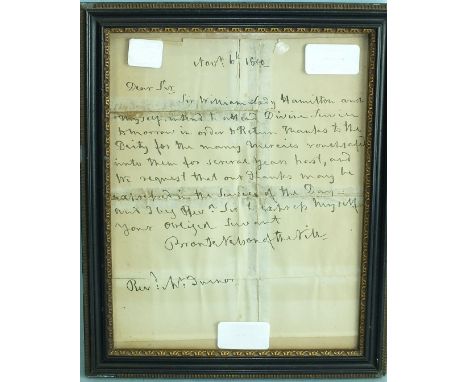 Novr. 6th 1800
Dear Sir,
Sir William, Lady Hamilton and
myself intend to attend Divine Service
tomorrow in order to Return thanks to the
Deity for the many Mercies vouchsafed
unto them for several years past, and
we request that our thanks may be
expressed in the Service of the Day
and I beg Revd. Sir to express myself
your obliged Servant
Bronte Nelson of the Nile
Revd. Mr.